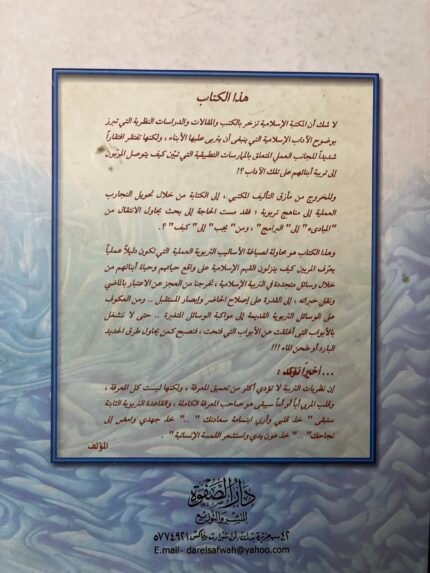 هذا الكتاب
لا شك أن المكتبة الإسلامية تزخر بالكتب والمقالات والدراسات النظرية التي تبرز
بوضوح الآداب الإسلامية التي ينبغى أن يتربى عليها الأبناء ، ولكنها تفتقر افتقاراً
شديداً للجانب العملي المتعلق بالممارسات التطبيقية التي تبيّن كيف يتوصل المربون
إلى تربية أبنائهم على تلك الآداب ؟!
وللخروج من مأزق التأليف المكتبي ، إلى الكتابة من خلال تحويل التجارب
العملية إلى مناهج تربوية ؛ فقد مست الحاجة إلى بحث يحاول الانتقال من
" المبادىء " إلى " البرامج " ، ومن " يجب " إلى " كيف " ؟ .
وهذا الكتاب هو محاولة لصياغة الأساليب التربوية العملية التي تكون دليلاً عملياً
يعرف المربين كيف ينزلون القيم الإسلامية على واقع حياتهم وحياة أبنائهم من
خلال وسائل متجددة في التربية الإسلامية ، تخرجنا من العجز عن الاعتبار بالماضي
ونقل خبراته ، إلى القدرة على إصلاح الحاضر وإبصار المستقبل .. ومن العكوف
على الوسائل التربوية القديمة إلى مواكبة الوسائل المتغيرة .. حتى لا ننشغل
بالأبواب التى أغلقت عن الأبواب التي فتحت ؛ فنصبح كمن يحاول طرق الحديد
البارد أو طحن الماء !!!
... أخيراً نؤكد :
إن نظريات التربية لا تؤدى أكثر من تعميق المعرفة ، ولكنها ليست كل المعرفة ،
وقلب المربي أباً أو أماً سيبقى هو صاحب المعرفة الكاملة ، والقاعدة التربوية الثابتة
ستبقى " خذ قلبي وأرني ابتسامة سعادتك " .. " خذ جهدي وامض إلى
نجاحك " .. " خذ عون يدي واستشعر اللمسة الإنسانية " .
المؤلف
دار الصفوة
للنشر والتوزيع
٥٧٧٤٩٢١
E.mail- darelsafwah@yahoo.com